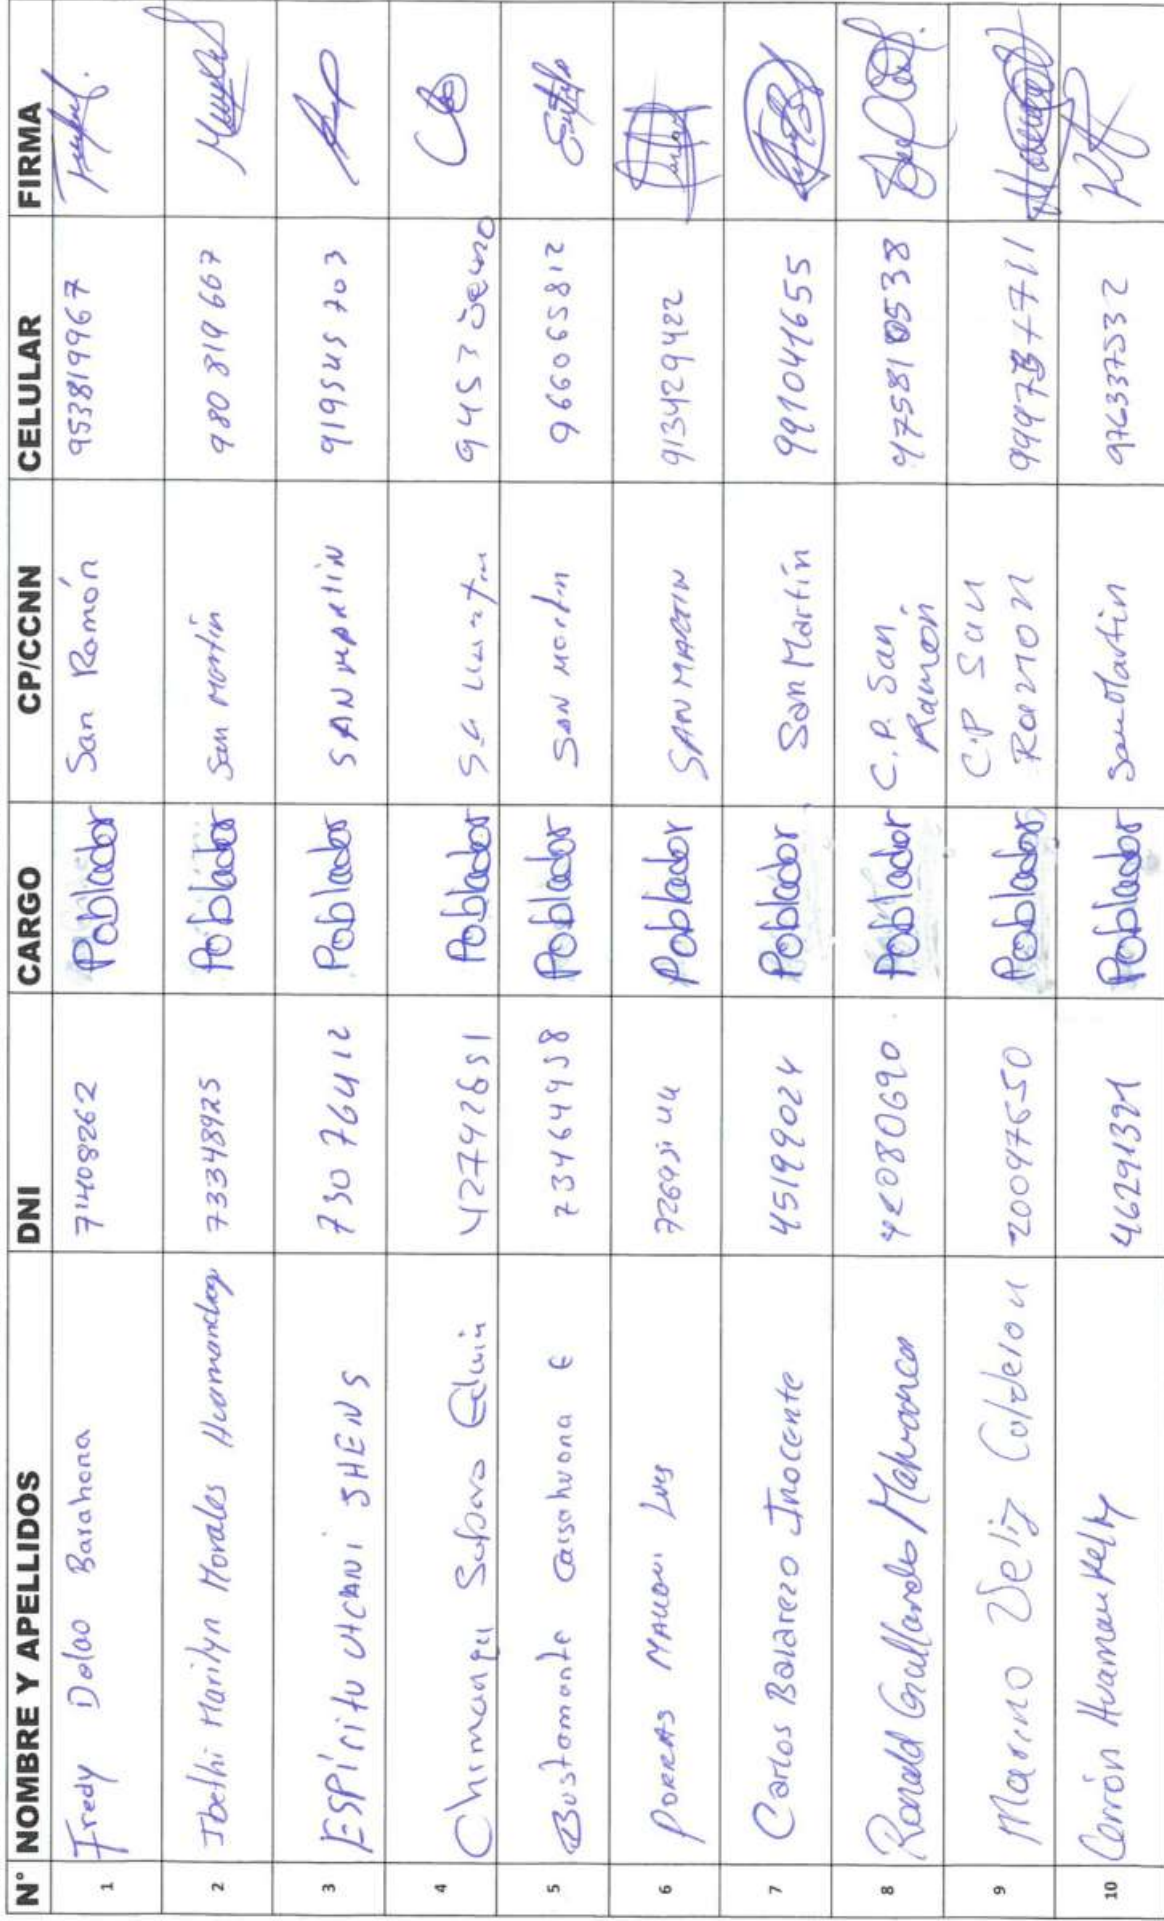 N° NOMBRE Y APELLIDOS DNI CARGO CP/CCNN CELULAR FIRMA
1 Fredy Dolao Barahona 71408262 Poblador San Ramón 953819967
2 Ibethi Marilyn Morales 73348925 Poblador San Martín 980 819 667
3 ESPÍRITU UTCANI SHENS 73076412 Poblador SAN MARTIN 919545703
4 Edwin 42742651 Poblador
5 Bustamante Carsahuona E 73464938 Poblador SAN Martin 966065812
6 PORRAS Luis Poblador SAN MARTIN 913429422
7 Carlos Balarezo Inocente 45199024 Poblador San Martín 991041655
8 Ronald Gallardo 42080690 Poblador C.P. San
Ramón.
9 Marino Veliz Calderon 20097650 Poblador C.P San
Ramon
10 Carrón Huaman Kelly 46291391 Poblador San Martin 976337532